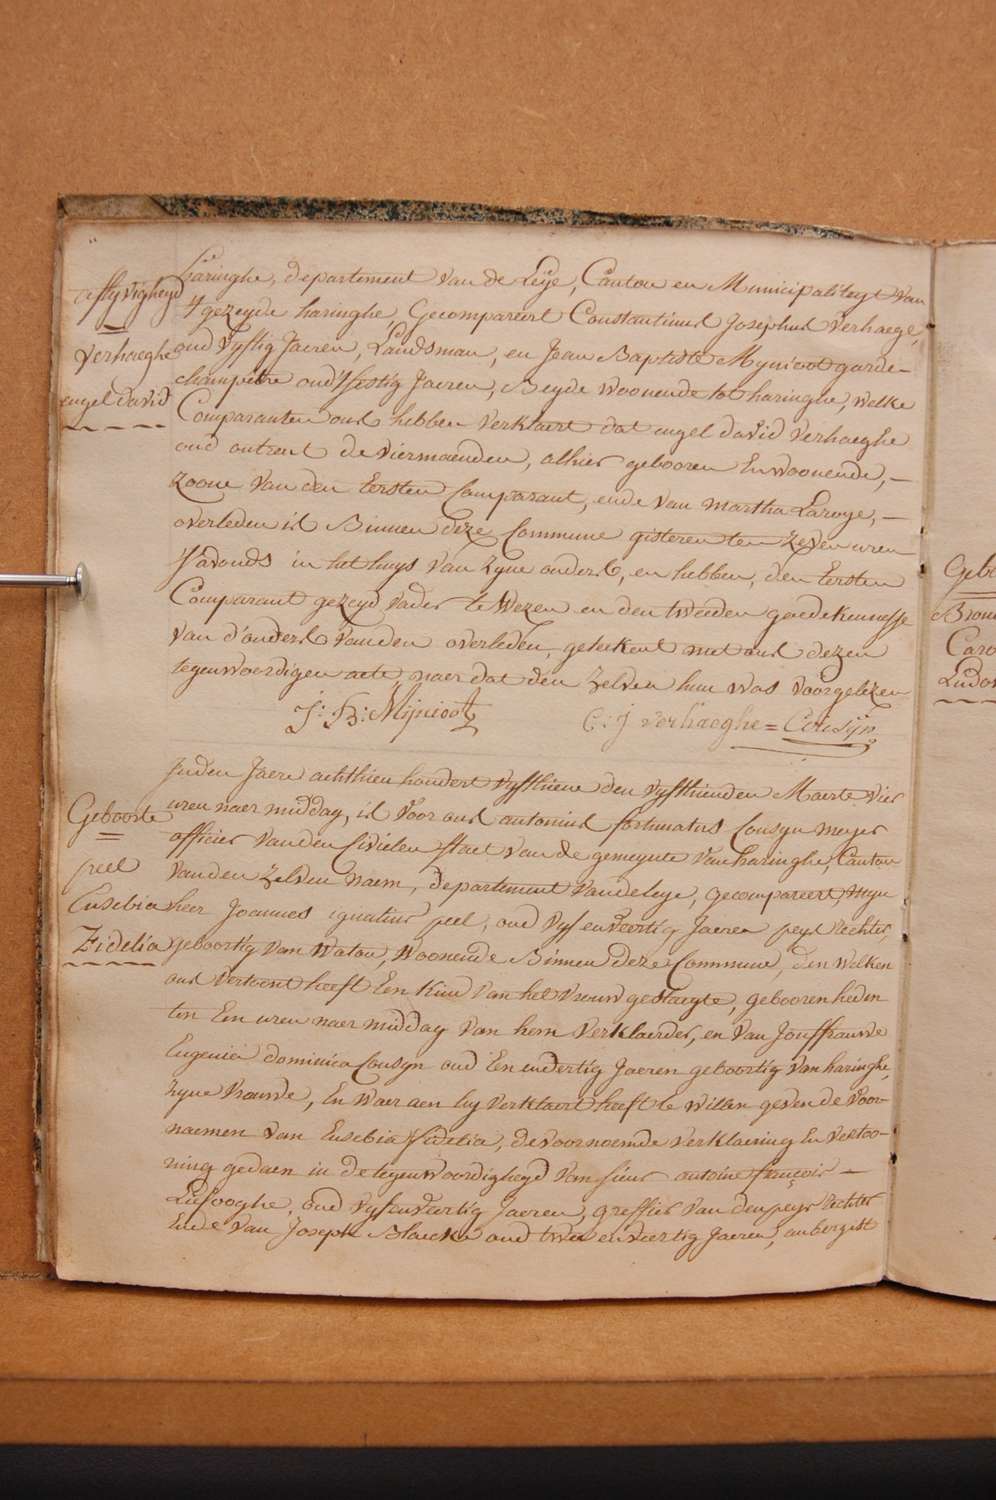 afflyvigheyd
Verhaeghe
engel david
haringhe, departement van de Leije, Canton en Municipaliteyt van
't gezeyde haringhe, Gecompareert Constantinus Josephus Verhaege,
oud vyftig Jaeren, Landsman, en Jean Baptiste Mynioot garde-
champêtre oud sestig Jaeren, Beyde woonende tot haringhe, welke
Comparanten ons hebben verklaert dat engel david verhaeghe
oud ontrent de viermaenden, alhier gebooren En woonende, —
zoone van den Eersten Comparant, ende van martha Laroye, —
overleden is Binnen deze Commune gisteren ten zeven uren
's avonds in het huys van zyne ouders, en hebben, den Eersten
Comparant gezeyd vader te wezen en den tweeden goede kennesse
van d'ouders van den overleden, geteekent met ons dezen
tegenwoordigen acte, naer dat den zelven hun was voorgelezen
J: B: Mijnioot C: J verhaeghe = Cousijn
Geboorte
peel
Eusebia
Fidelia
In den Jaere achthien hondert vyfthiene den vyfthienden Maerte vier
uren naer middag, is voor ons antonius fortunatus Cousyn meyer
officier van den Civielen staet van de gemeynte van haringhe, Canton
van den zelven naem, departement van de leye, gecompareert, myn
heer Joannes ignatius peel, oud vyf en veertig Jaeren peys rechter,
geboortig van Watou, Woonende Binnen deze Commune, den welken
ons vertoont heeft Een kind van het vrouw geslaegte, gebooren heden
ten Een uren naer middag van hem verklaerder, en van Jouffrauwe
Eugenia dominica Cousyn oud Een en dertig Jaeren geboortig van haringhe,
zyne vrauwe, En waer aen hy verklaert heeft te willen geven de voor-
naemen van Eusebia fidelia, de voornoemde verklaering En vertoo-
ning gedaen in de tegenwoordigheyd van sieur antoine françois —
Liefooghe, oud vyf en veertig Jaeren, greffier van den peys rechter
Ende van Joseph Blaeckx oud twee en veertig Jaeren, aubergist
Gebo
Caro
Ludov